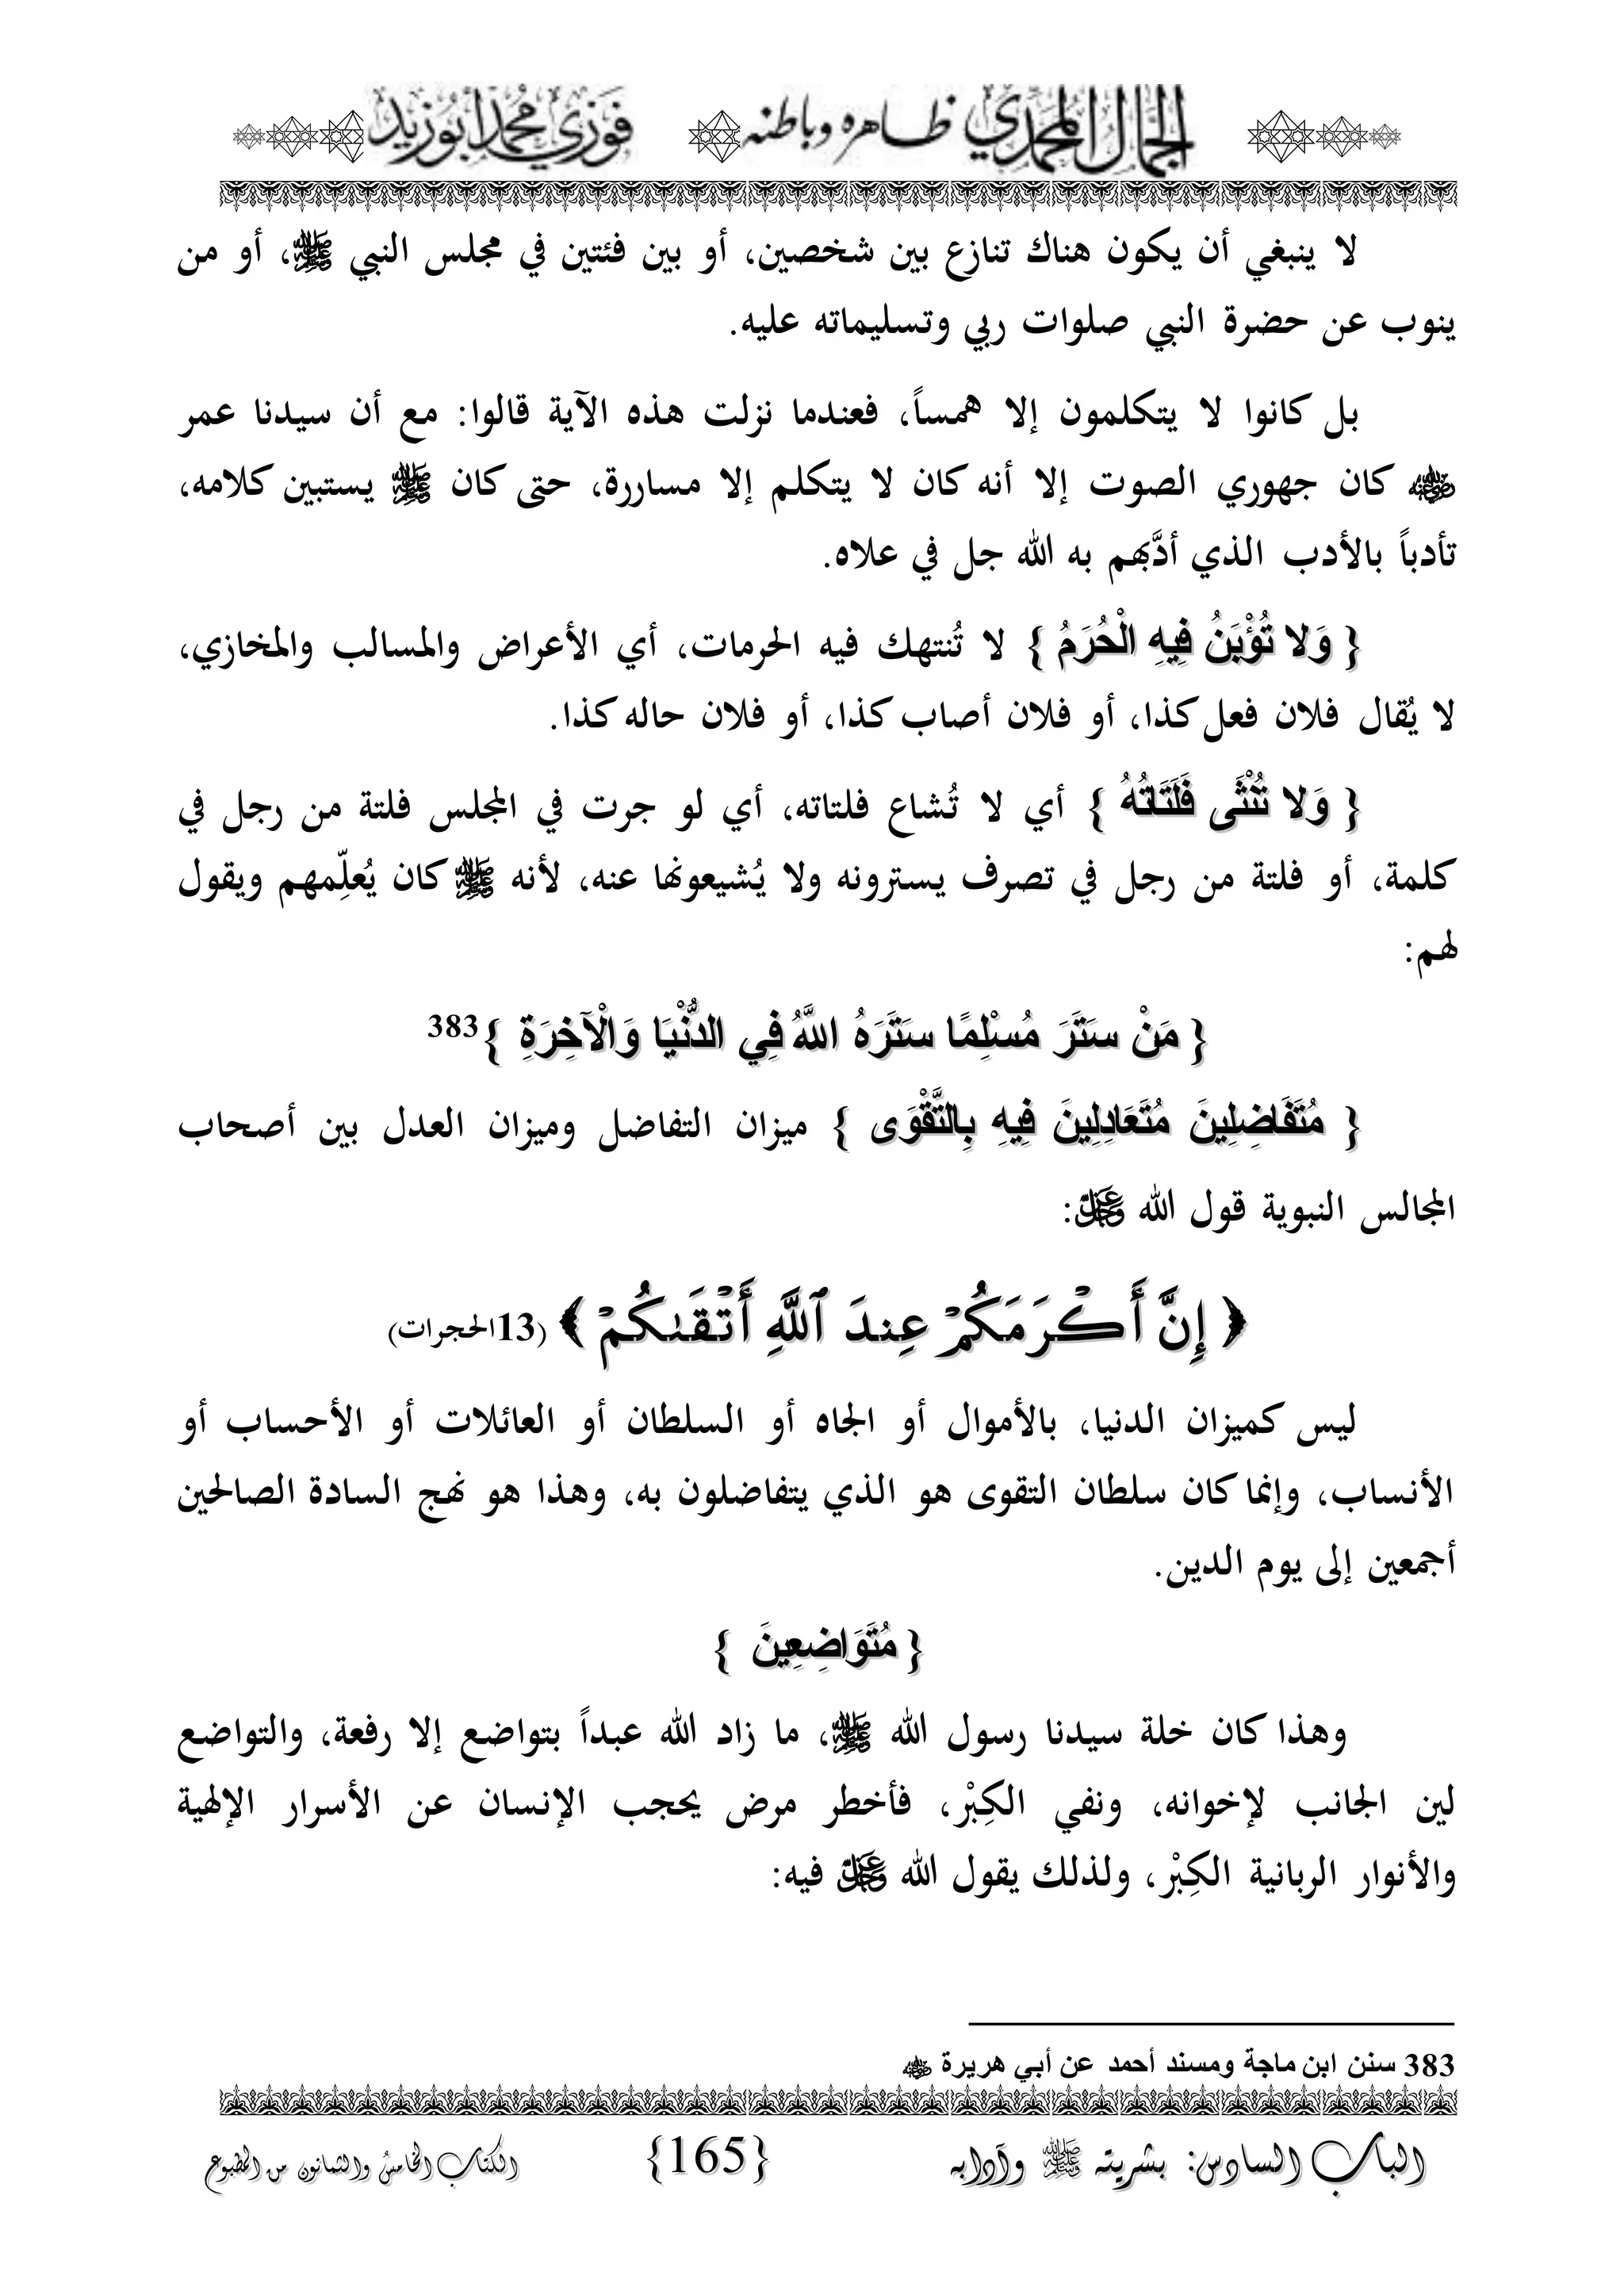 الجمال المحمدي ظاهره وباطنه فوزي محمد أبوزيد
لا ينبغي أن يكون هناك تنازع بين شخصين، أو بين فئتين في مجلس النبي ﷺ، أو من
ينوب عن حضرة النبي صلوات ربي وتسليماته عليه.
بل كانوا لا يتكلمون إلا همساً، فعندما نزلت هذه الآية قالوا: مع أن سيدنا عمر
رضي الله عنه كان جهوري الصوت إلا أنه كان لا يتكلم إلا مساررة، حتى كان ﷺ يستبين كلامه،
تأدباً بالأدب الذي أدَّبهم به الله جل في علاه.
{ وَلا تُؤْبَنُ فِيهِ الْحُرَمُ } لا تُنتهك فيه الحرمات، أي الأعراض والمسالب والمخازي،
لا يُقال فلان فعل كذا، أو فلان أصاب كذا، أو فلان حاله كذا.
{ وَلا تُنْثَى فَلَتَاتُهُ } أي لا تُشاع فلتاته، أي لو جرت في المجلس فلتة من رجل في
كلمة، أو فلتة من رجل في تصرف يسترونه ولا يُشيعونها عنه، لأنه ﷺ كان يُعلِّمهم ويقول
لهم:
{ مَنْ سَتَرَ مُسْلِمًا سَتَرَهُ اللَّهُ فِي الدُّنْيَا وَالْآخِرَةِ }383
{ مُتَفَاضِلِينَ مُتَعَادِلِينَ فِيهِ بِالتَّقْوَى } ميزان التفاضل وميزان العدل بين أصحاب
المجالس النبوية قول الله عز وجل:
﴿ إِنَّ أَكْرَمَكُمْ عِندَ ٱللَّهِ أَتْقَىٰكُمْ ﴾ (13الحجرات)
ليس كميزان الدنيا، بالأموال أو الجاه أو السلطان أو العائلات أو الأحساب أو
الأنساب، وإنما كان سلطان التقوى هو الذي يتفاضلون به، وهذا هو نهج السادة الصالحين
أجمعين إلى يوم الدين.
{ مُتَوَاضِعِينَ }
وهذا كان خلة سيدنا رسول الله ﷺ، ما زاد الله عبداً بتواضع إلا رفعة، والتواضع
لين الجانب لإخوانه، ونفي الكِبْر، فأخطر مرض يحجب الإنسان عن الأسرار الإلهية
والأنوار الربانية الكِبْر، ولذلك يقول الله عز وجل فيه:
383 سنن ابن ماجة ومسند أحمد عن أبي هريرة رضي الله عنه
الباب السادس: بشريته ﷺ وآدابه {165} الكتاب الخامس والثمانون من المطبوع